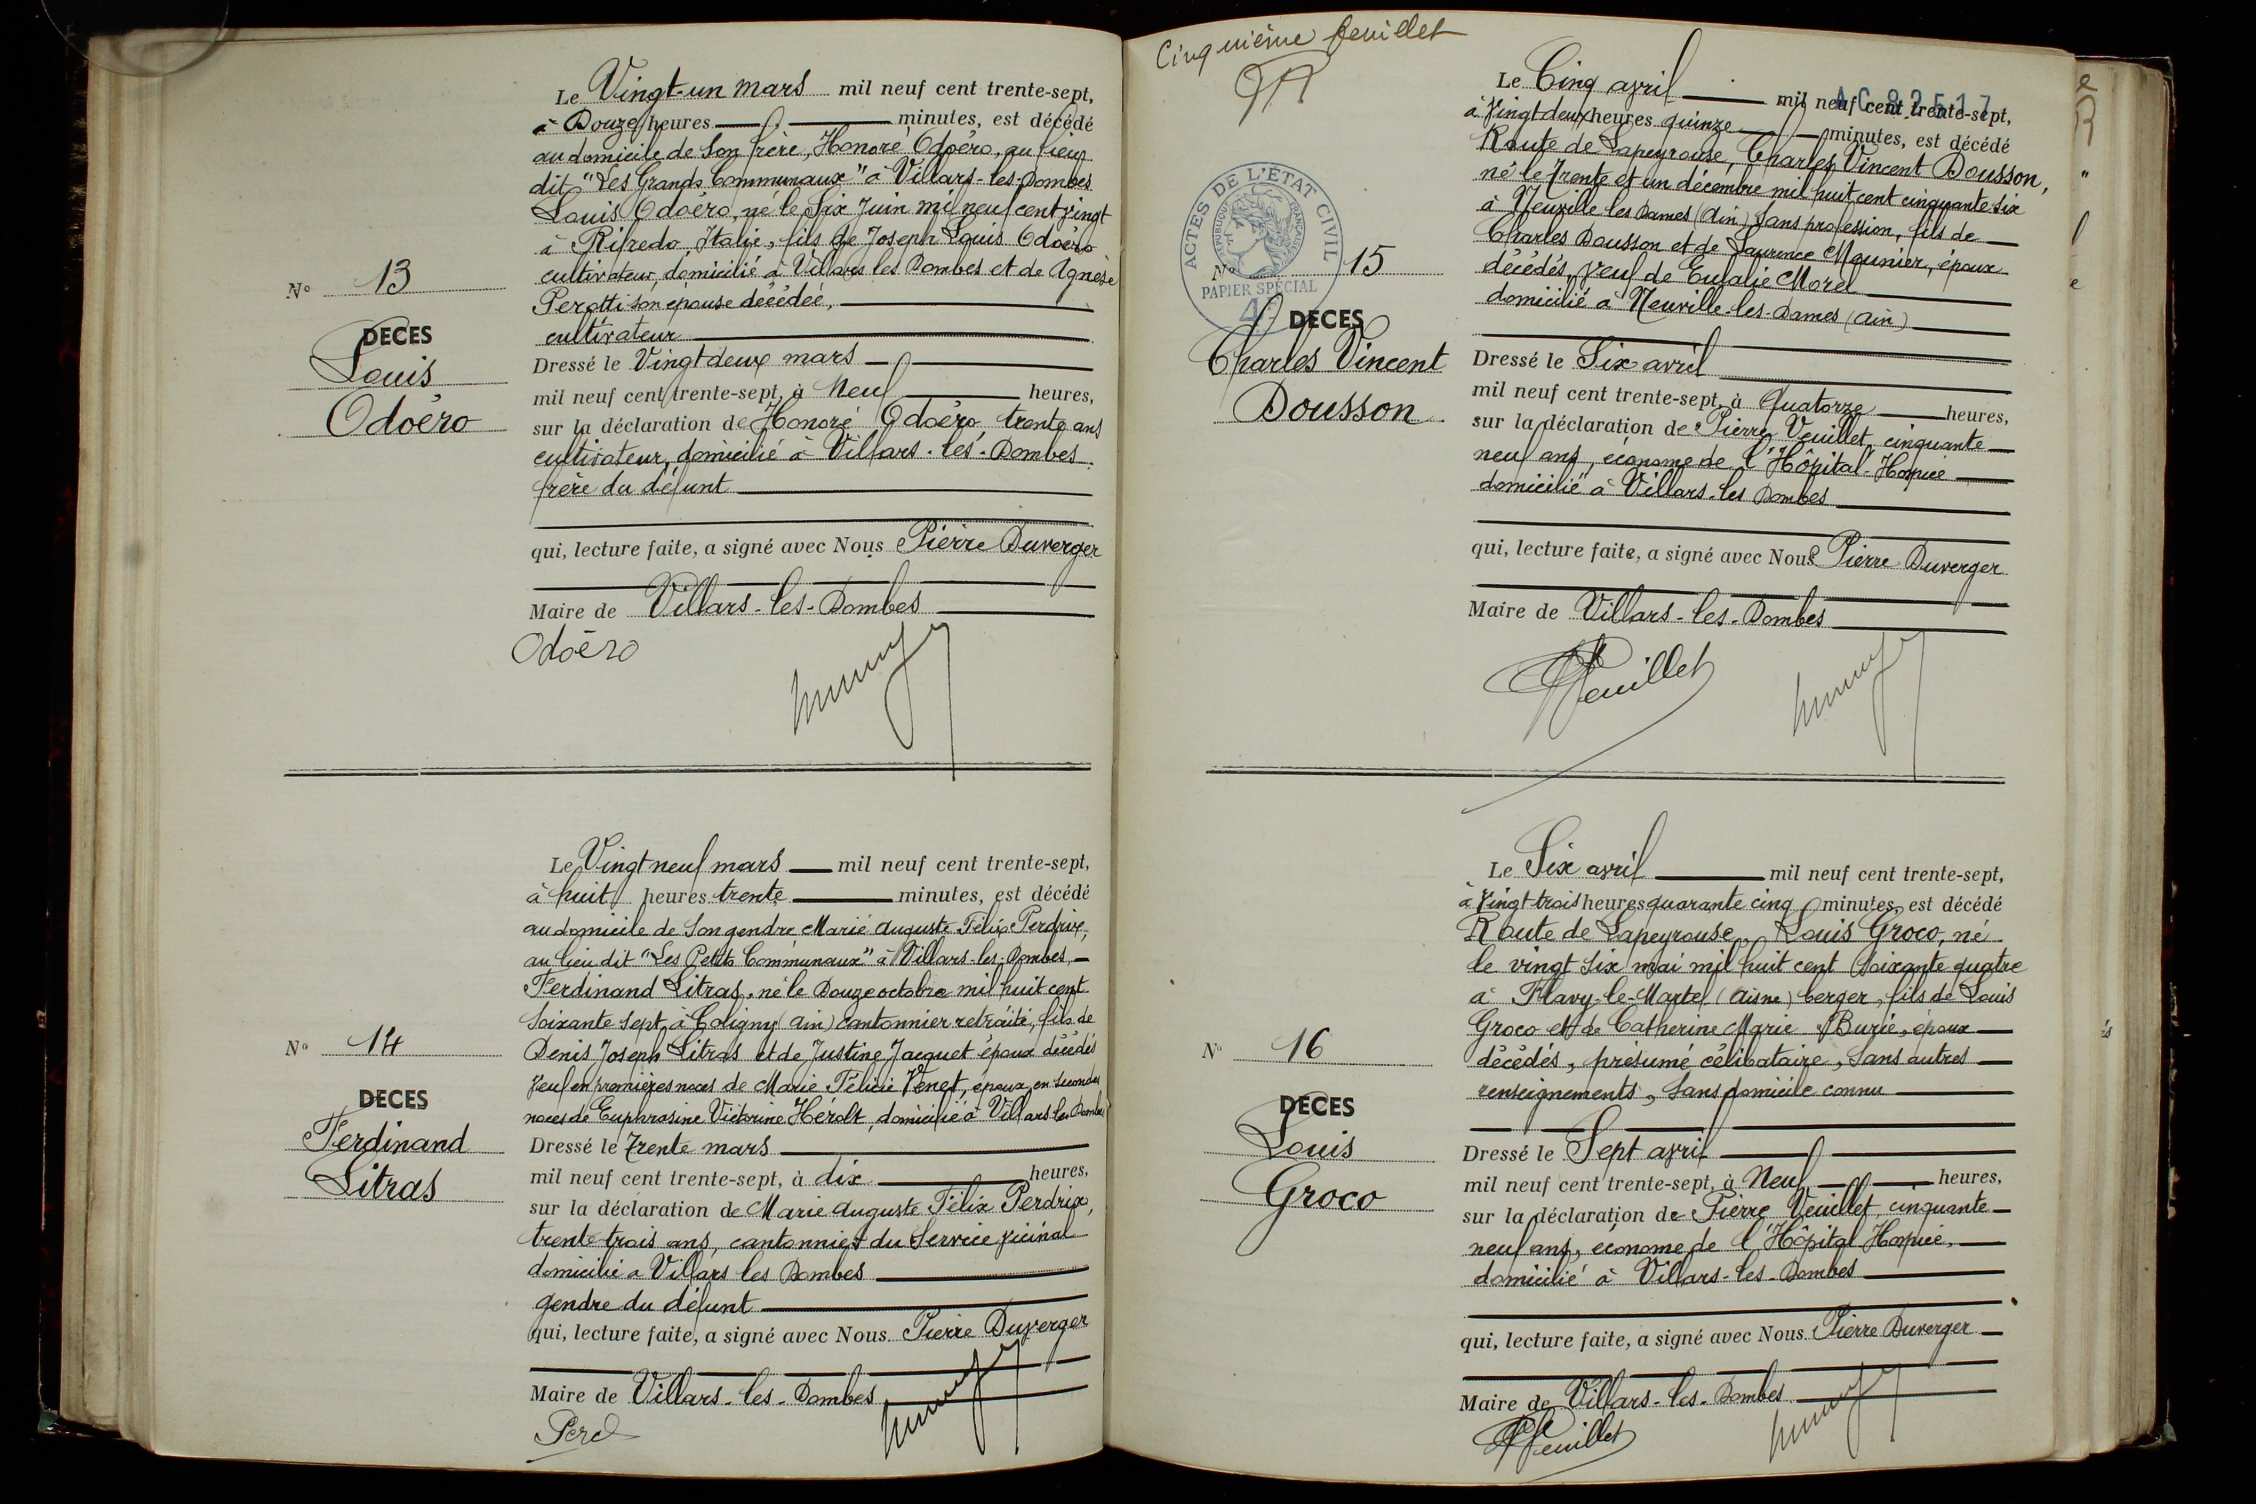 Le Vingt-un mars mil neuf cent trente-sept,
à Douze heures minutes, est décédé
au domicile de son frère, Honoré Odoéro, au lieu
dit "Les Grands Communaux" à Villars-les-Dombes
Louis Odoéro, né le Six Juin mil neuf cent vingt
à Rifredo, Italie, fils de Joseph Louis Odoéro
cultivateur, domicilié à Villars les Dombes et de Agnèse
Perotti son épouse décédée,
cultivateur
Nº 13
DECES
Louis
Odoéro
Dressé le Vingt deux mars
mil neuf cent trente-sept, à Neuf heures,
sur la déclaration de Honoré Odoéro, trente ans
cultivateur, domicilié à Villars-les-Dombes.
frère du défunt
qui, lecture faite, a signé avec Nous Pierre Duverger
Maire de Villars-les-Dombes
Odoéro
Le Vingt neuf mars mil neuf cent trente-sept,
à huit heures trente minutes, est décédé
au domicile de son gendre Marie Auguste Félix Perdrix,
au lieu dit "Les Petits Communaux" à Villars-les-Dombes,
Ferdinand Litras, né le Douze octobre mil huit cent
soixante sept, à Coligny (Ain) cantonnier retraité, fils de
Denis Joseph Litras et de Justine Jacquet époux décédés
Veuf en premières noces de Marie Félicie Venet, époux en secondes
noces de Euphrasine Victorine Hérolt, domicilié à Villars les Dombes
Nº 14
DECES
Ferdinand
Litras
Dressé le Trente mars
mil neuf cent trente-sept, à dix heures,
sur la déclaration de Marie Auguste Félix Perdrix,
trente trois ans, cantonnier du Service vicinal
domicilié à Villars les Dombes
gendre du défunt
qui, lecture faite, a signé avec Nous Pierre Duverger
Maire de Villars-les-Dombes
Cinquième feuillet
AC 82517
Le Cinq avril mil neuf cent trente-sept,
à Vingt deux heures quinze minutes, est décédé
Route de Lapeyrouse, Charles Vincent Dousson,
né le Trente et un décembre mil huit cent cinquante six
à Neuville les Dames (Ain) sans profession, fils de
Charles Dousson et de Laurence Mounier, époux
décédés, veuf de Eulalie Morel
domicilié à Neuville-les-Dames (Ain)
ACTES DE L'ÉTAT CIVIL
RÉPUBLIQUE FRANÇAISE
PAPIER SPÉCIAL
Nº 15
DECES
Charles Vincent
Dousson
Dressé le Six avril
mil neuf cent trente-sept, à Quatorze heures,
sur la déclaration de Pierre Veuillet, cinquante
neuf ans, économe de l'Hôpital-Hospice
domicilié à Villars-les Dombes
qui, lecture faite, a signé avec Nous Pierre Duverger
Maire de Villars-les-Dombes
Veuillet
Le Six avril mil neuf cent trente-sept,
à Vingt-trois heures quarante cinq minutes, est décédé
Route de Lapeyrouse, Louis Groco, né
le vingt six mai mil huit cent soixante quatre
à Flavy-le-Martel (Aisne) berger, fils de Louis
Groco et de Catherine Marie Burie, époux
décédés, présumé célibataire, sans autres
renseignements, sans domicile connu
Nº 16
DECES
Louis
Groco
Dressé le Sept avril
mil neuf cent trente-sept, à Neuf heures,
sur la déclaration de Pierre Veuillet, cinquante
neuf ans, économe de l'Hôpital Hospice,
domicilié à Villars-les-Dombes
qui, lecture faite, a signé avec Nous Pierre Duverger
Maire de Villars-les-Dombes
Veuillet